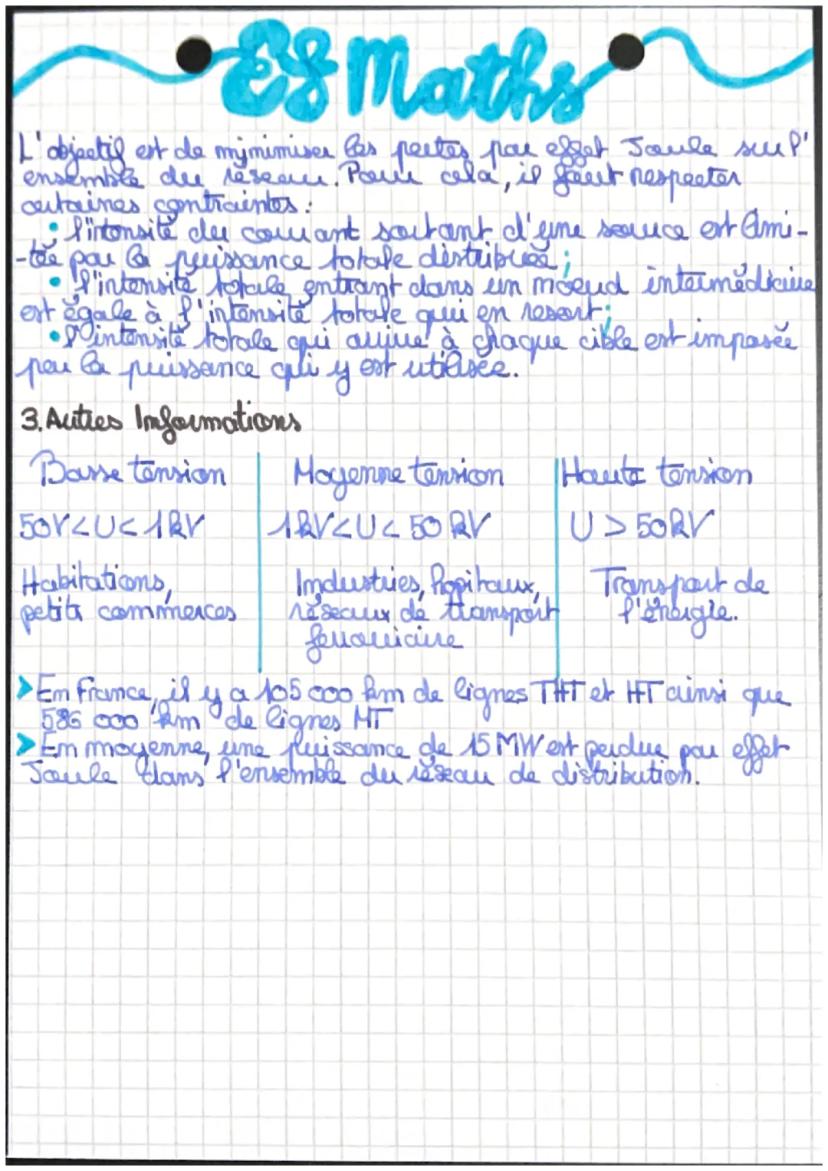 ES Maths
L'objectif est de minimiser les pertes par effet Joule sur l'
ensemble du réseau. Pour cela, il faut respecter
certaines contraintes :
• l'intensité du courant sortant d'une source est limi-
-tée par la puissance totale distribuée ;
• l'intensité totale entrant dans un noeud intermédiaire
est égale à l'intensité totale qui en resort ;
• l'intensité totale qui arrive à chaque cible est imposée
par la puissance qui y est utilisée.
3. Autres Informations
Basse tension | Moyenne tension | Haute tension
50V < U < 1 kV | 1 kV < U < 50 kV | U > 50 kV
Habitations, | Industries, hopitaux, | Transport de
petits commerces | réseaux de transport | l'énergie.
ferroviaire
> En France, il y a 105 000 km de lignes THT et HT ainsi que
586 000 km de lignes MT
> En moyenne, une puissance de 15 MW est perdue par effet
Joule dans l'ensemble du réseau de distribution.